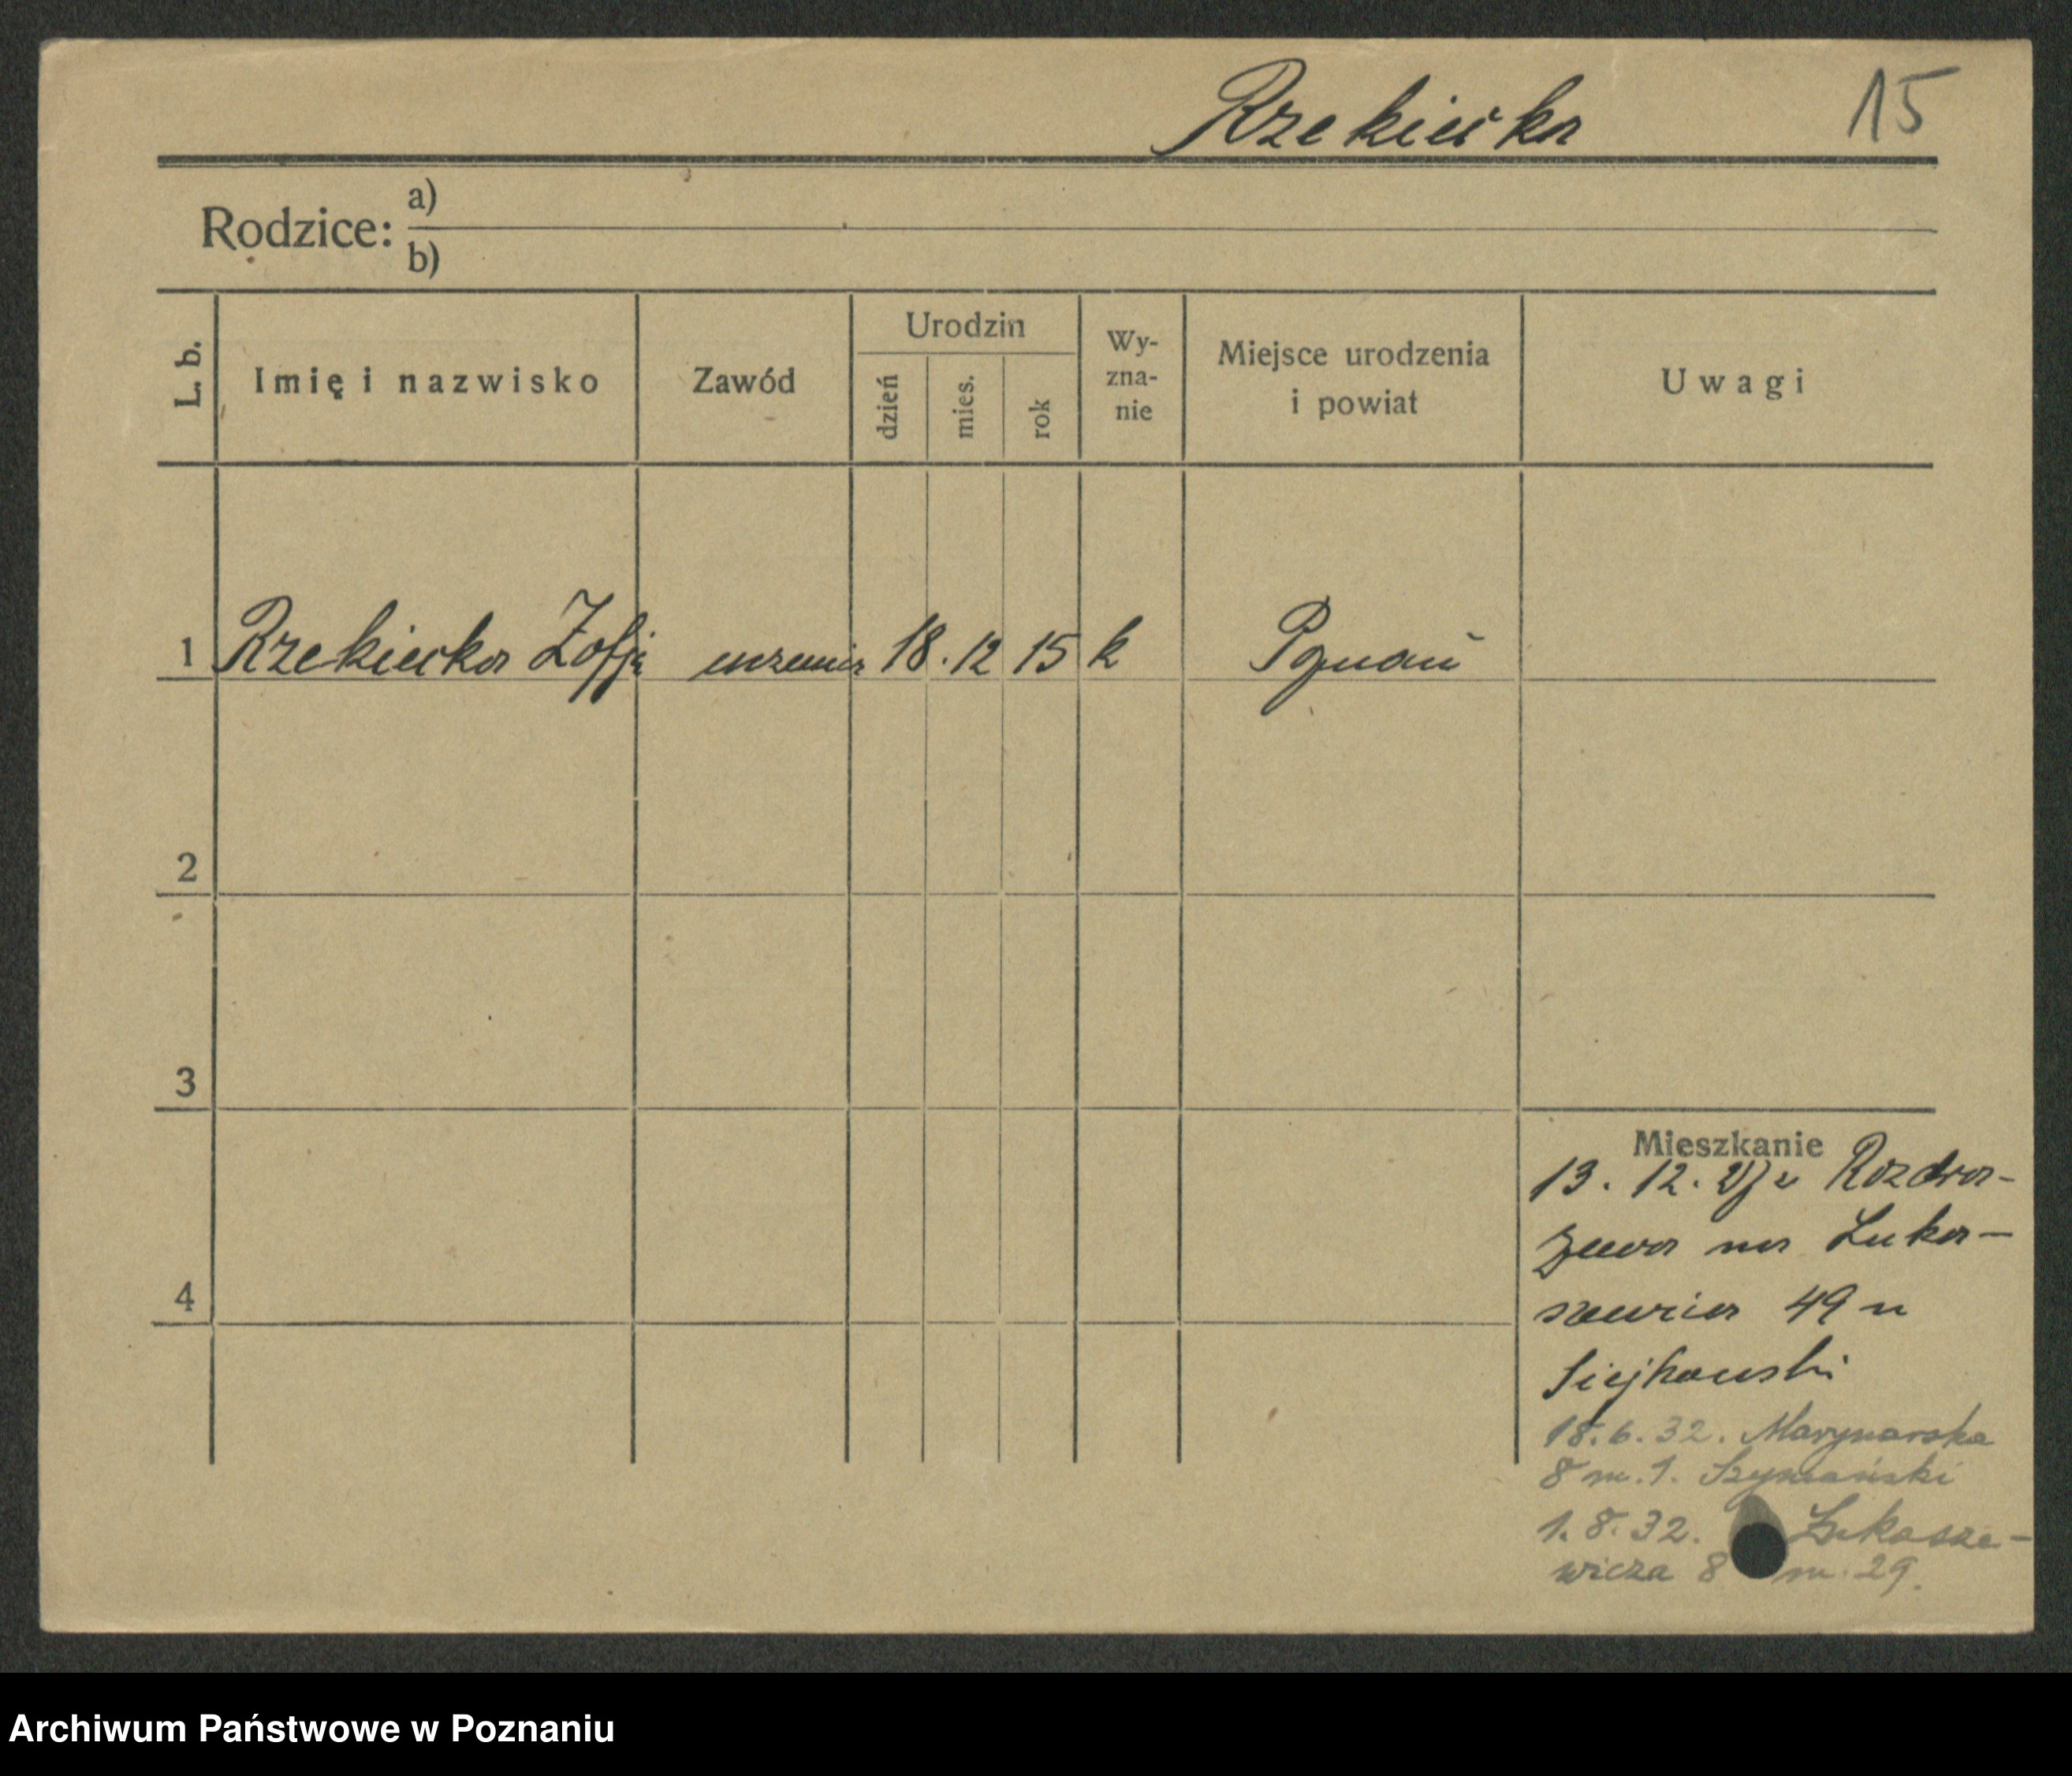 Rzekiecka 15
Rodzice: a)
b)
L. b. Imię i nazwisko Zawód Urodzin dzień mies. rok Wy-zna-nie Miejsce urodzenia i powiat Uwagi
1 Rzekiecka Zofja uczenica 18. 12 15 k Poznań
2
3
4
Mieszkanie
13. 12. z Rozdra-
żewa na Łuka-
szewicza 49 u
Siejkowski
18. 6. 32. Marynarska
8 m. 1. Szymański
1. 8. 32. Łukasze-
wicza 8 m. 29.
Archiwum Państwowe w Poznaniu